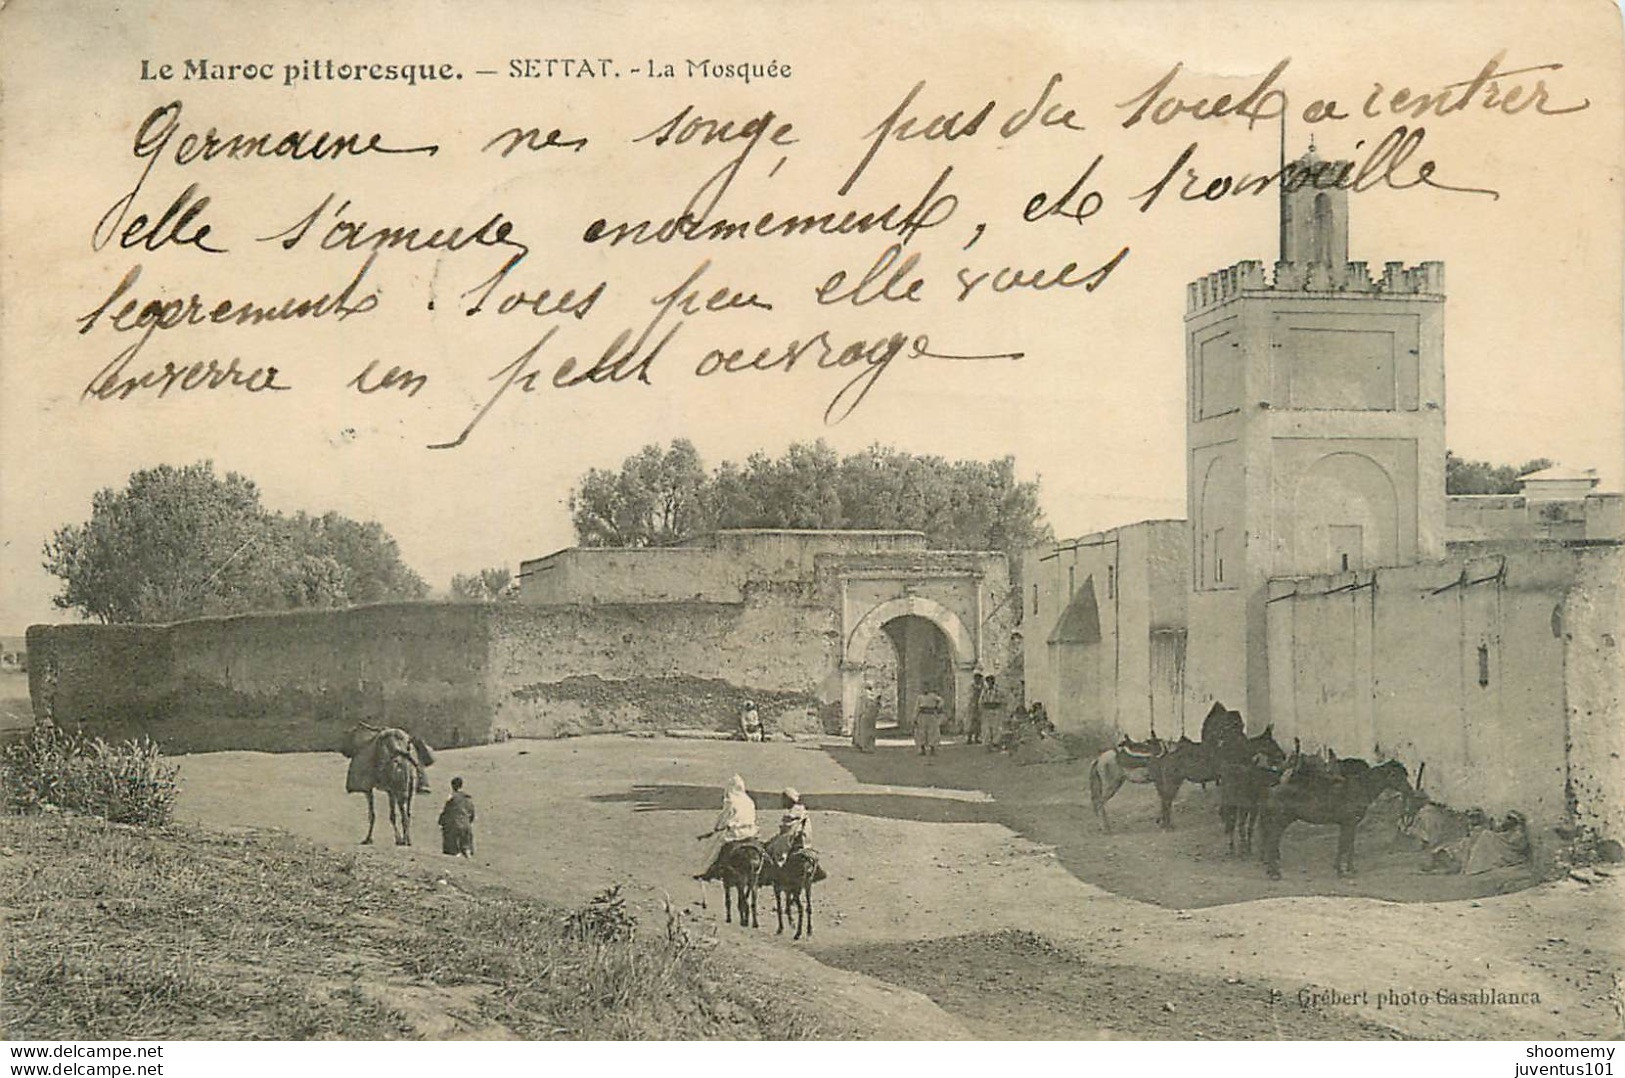 Le Maroc pittoresque. — SETTAT. - La Mosquée
Germaine ne songe pas du tout a rentrer
elle s'amuse enormément, et travaille
legerement. Sous peu elle vous
enverra un petit ouvrage
F. Grébert photo Casablanca
www.delcampe.net
www.delcampe.net
shoomemy
juventus101